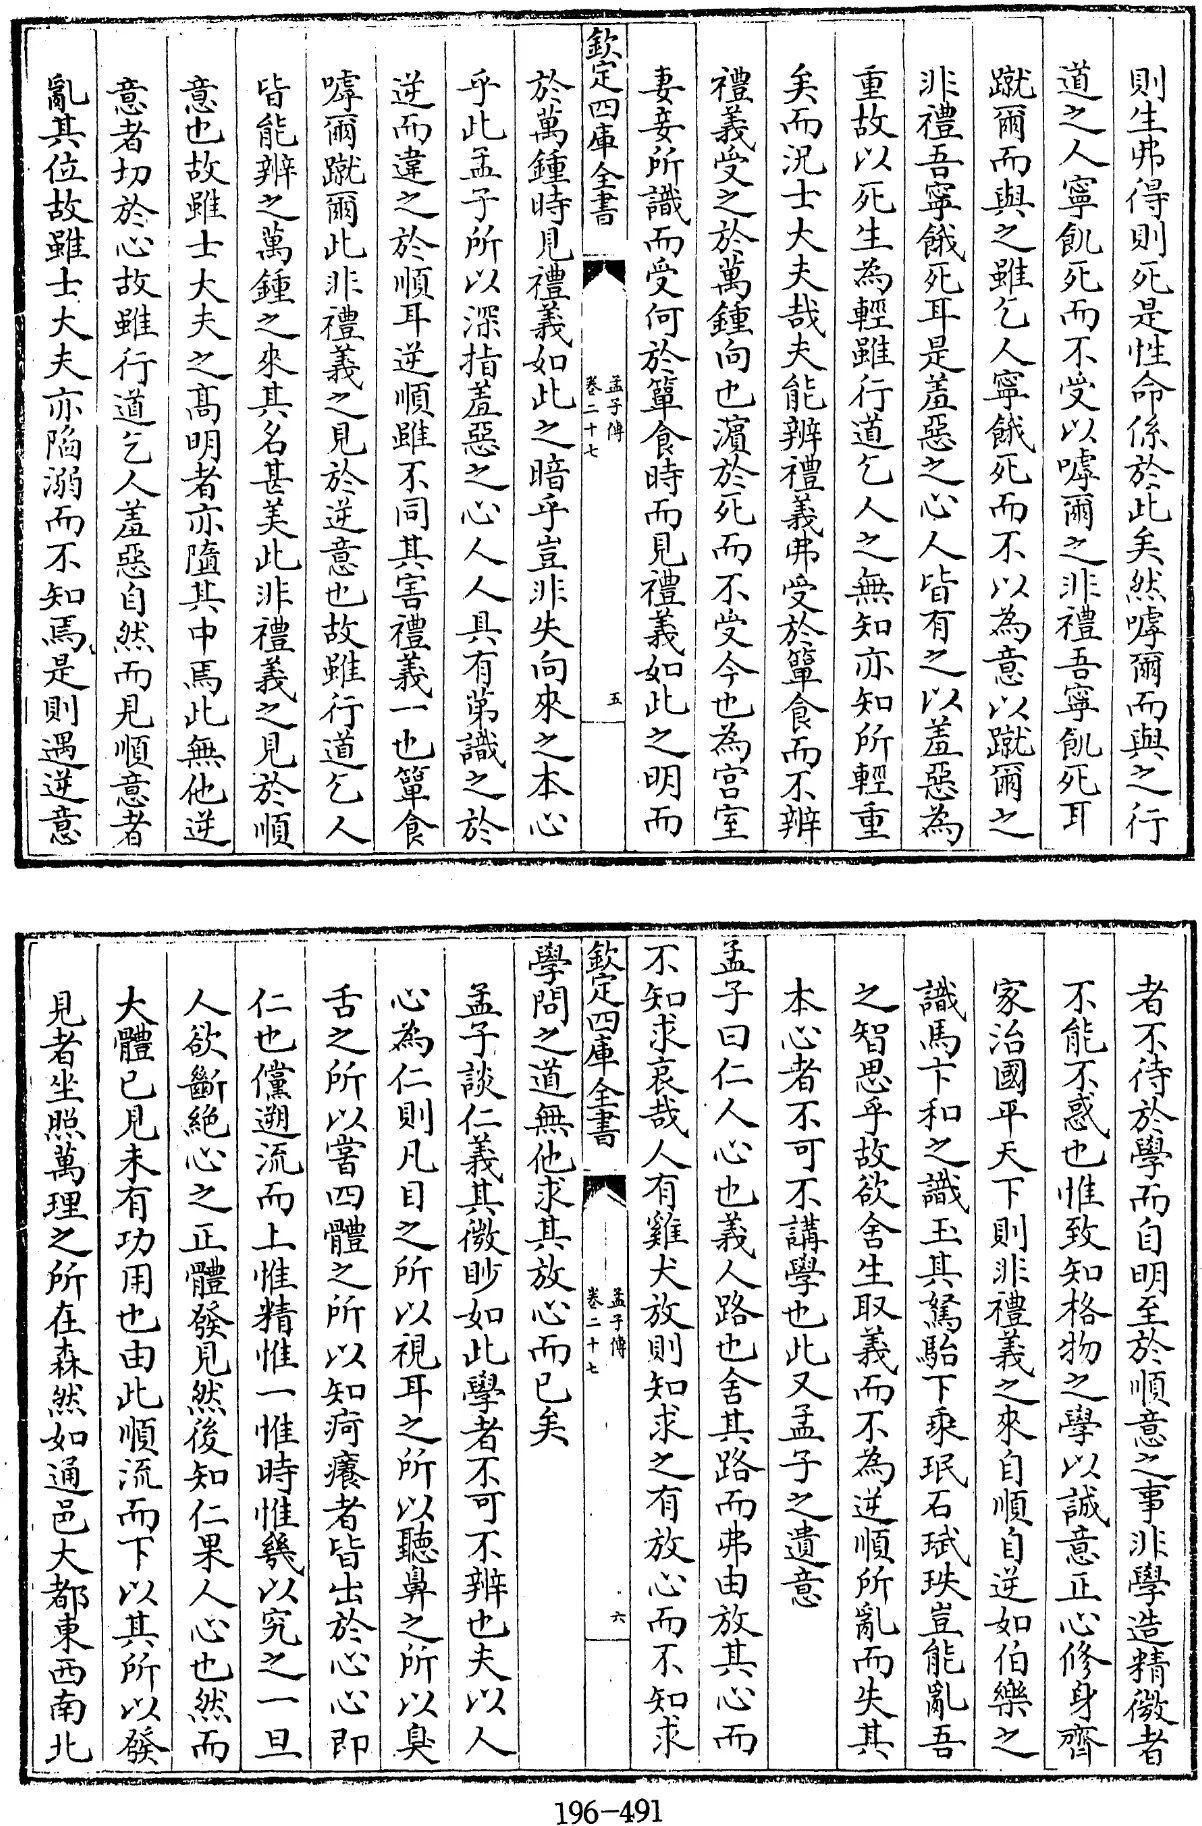 則生弗得則死是性命係於此矣然嘑爾而與之行
道之人寧飢死而不受以嘑爾之非禮吾寧飢死耳
蹴爾而與之雖乞人寧餓死而不以為意以蹴爾之
非禮吾寧餓死耳是羞惡之心人皆有之以羞惡為
重故以死生為輕雖行道乞人之無知亦知所輕重
矣而況士大夫哉夫能辨禮義弗受於簞食而不辨
禮義受之於萬鍾向也濵於死而不受今也為宫室
妻妾所識而受何於簞食時而見禮義如此之明而
欽定四庫全書
孟子傳
卷二十七
五
於萬鍾時見禮義如此之暗乎豈非失向來之本心
乎此孟子所以深指羞惡之心人人具有第識之於
逆而違之於順耳逆順雖不同其害禮義一也簞食
嘑爾蹴爾此非禮義之見於逆意也故雖行道乞人
皆能辨之萬鍾之來其名甚美此非禮義之見於順
意也故雖士大夫之髙明者亦墮其中焉此無他逆
意者切於心故雖行道乞人羞惡自然而見順意者
亂其位故雖士大夫亦陷溺而不知焉是則遇逆意
者不待於學而自明至於順意之事非學造精微者
不能不惑也惟致知格物之學以誠意正心修身齊
家治國平天下則非禮義之來自順自逆如伯樂之
識馬卞和之識玉其駑駘下乘珉石珷玞豈能亂吾
之智思乎故欲舍生取義而不為逆順所亂而失其
本心者不可不講學也此又孟子之遺意
孟子曰仁人心也義人路也舍其路而弗由放其心而
不知求哀哉人有雞犬放則知求之有放心而不知求
欽定四庫全書
孟子傳
卷二十七
六
學問之道無他求其放心而已矣
孟子談仁義其微眇如此學者不可不辨也夫以人
心為仁則凡目之所以視耳之所以聽鼻之所以臭
舌之所以嘗四體之所以知疴癢者皆出於心心即
仁也儻遡流而上惟精惟一惟時惟幾以究之一旦
人欲斷絶心之正體發見然後知仁果人心也然而
大體已見未有功用也由此順流而下以其所以發
見者坐照萬理之所在森然如通邑大都東西南北
196-491